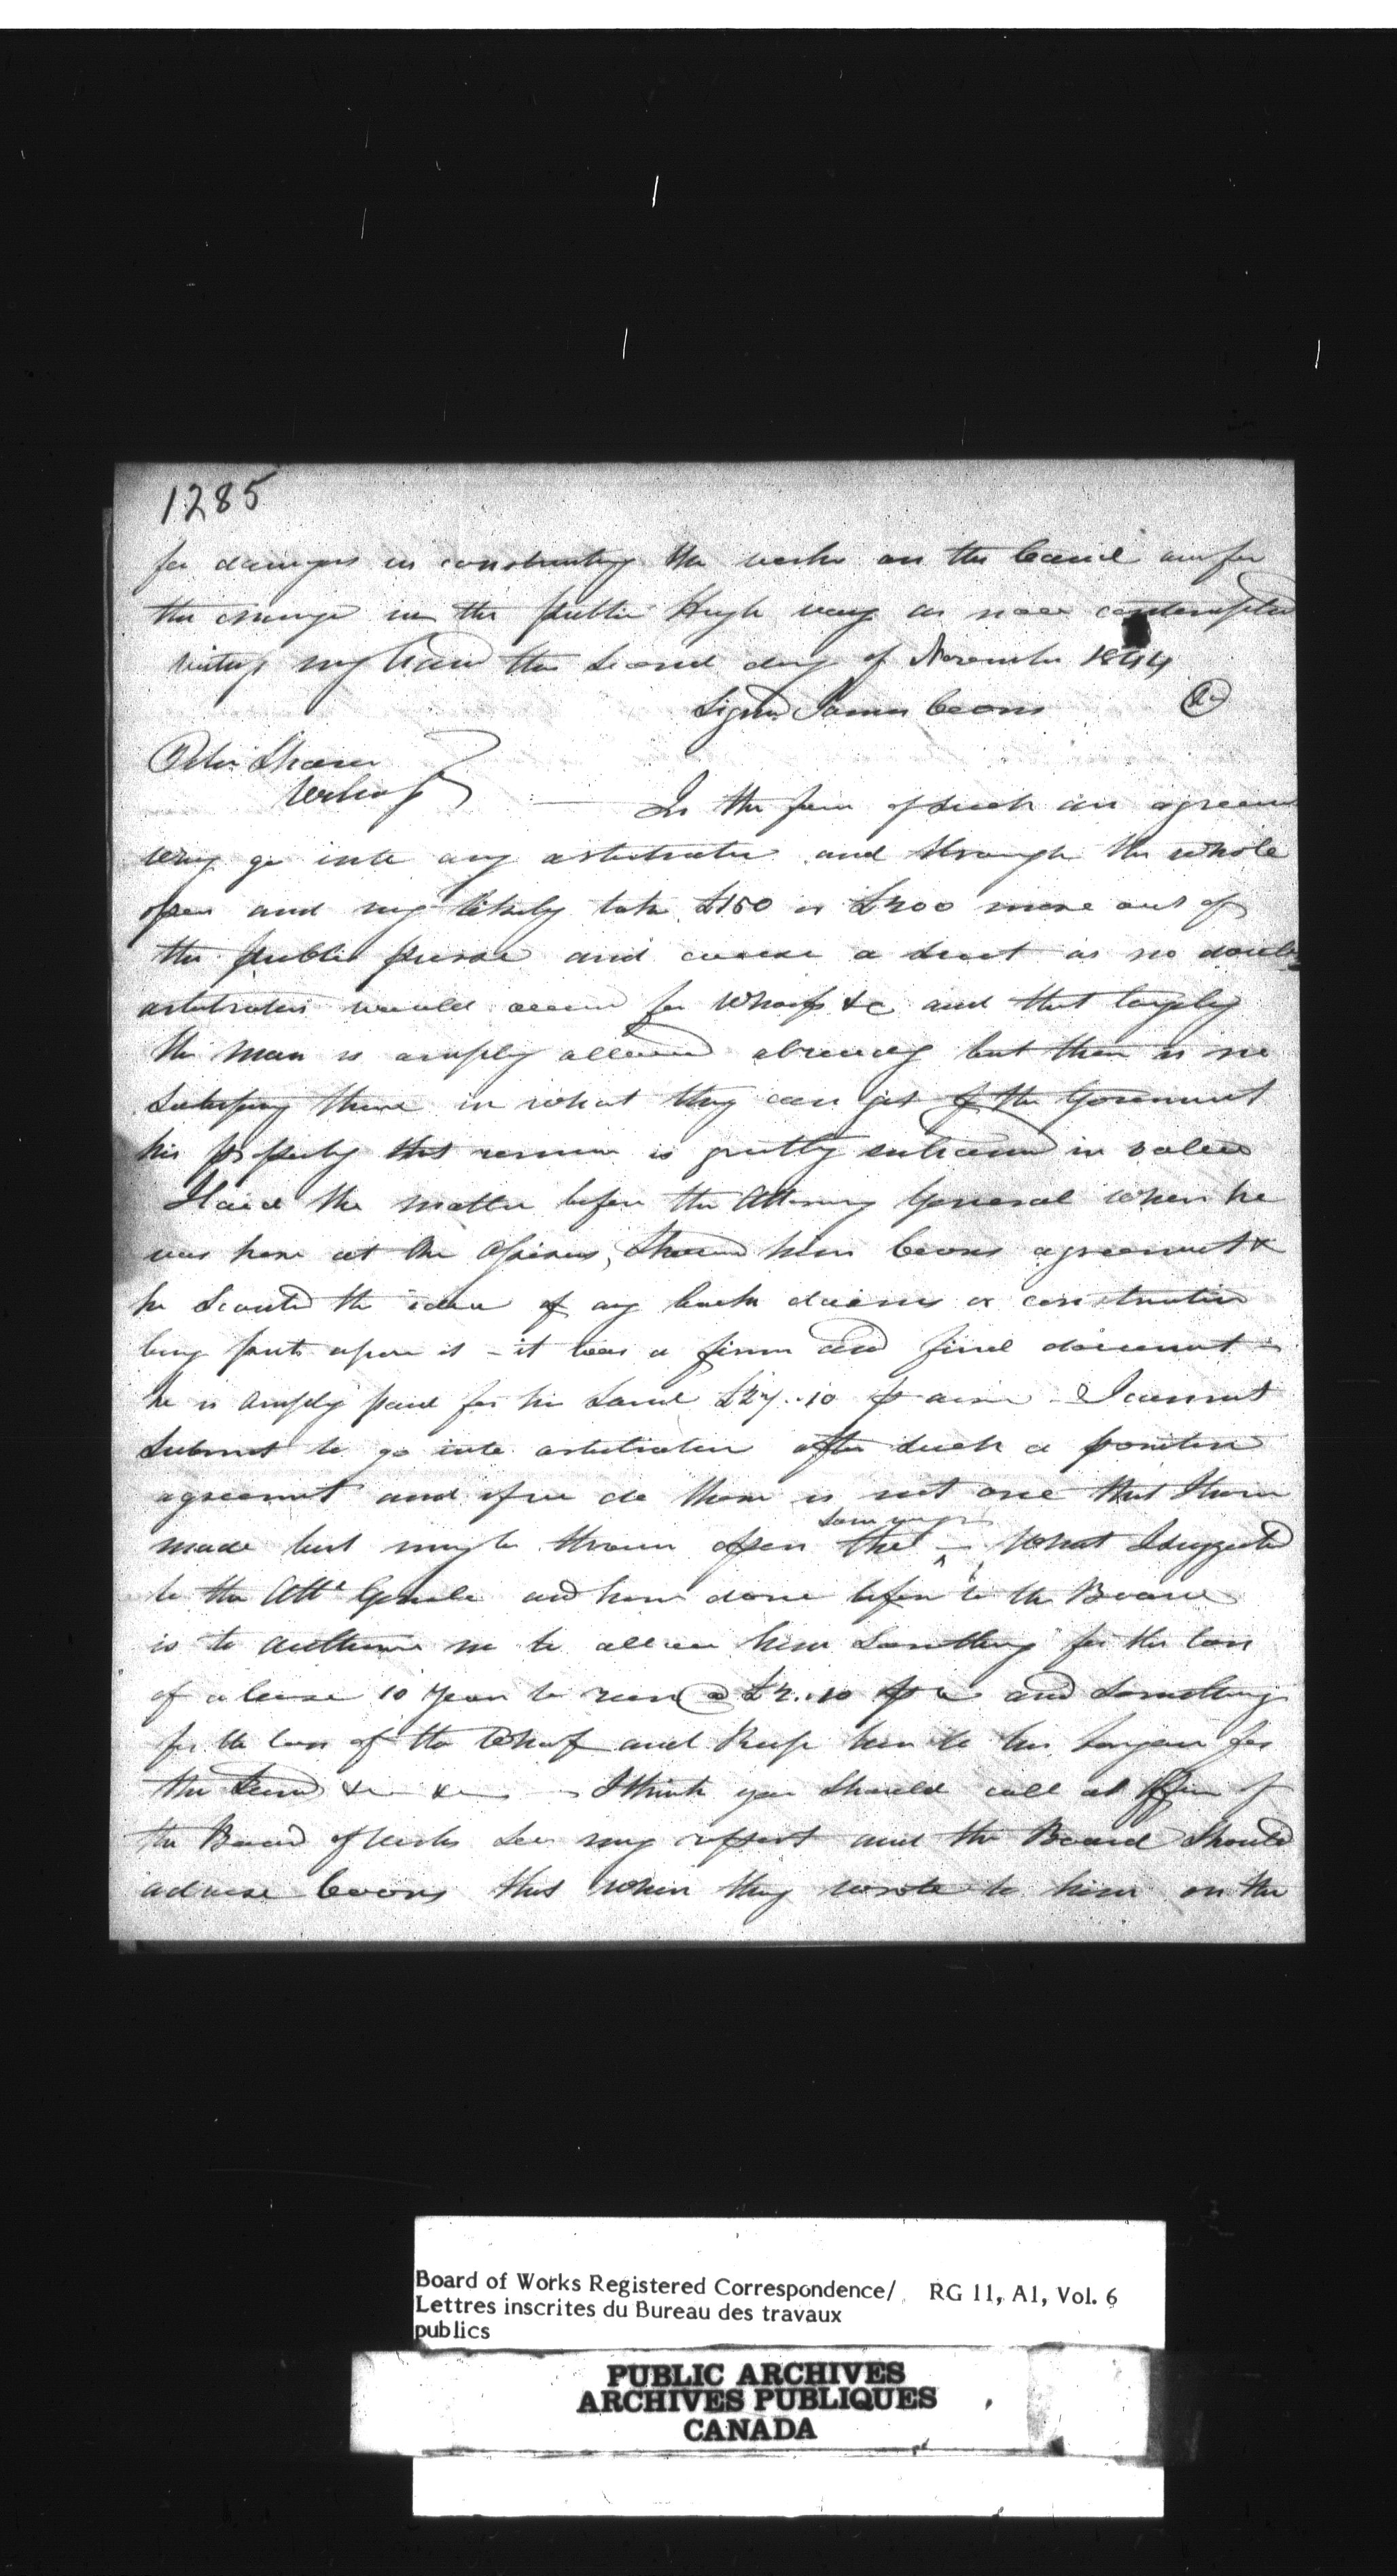 1285
for damages in constructing the works on the Canal or for
the change in the public High way as now contemplated
Witness my hand the Second day of November 1844
Signed James Coons
Peter Shaver
In the face of such an agreement
why go into any arbitration and through the whole
open and very likely take £150 or £200 more out of
the public purse and cause a as no doubt
arbitrators would allow for Wharfs &c and that largely
the man is amply allowed already but there is no
satisfying them in what they can get of the Government
his property that remains is greatly enhanced in value
I laid the matter before the Attorney General when he
was here at the Assizes, Shewed him Coons agreement &
he Scouted the idea of any such claims or construction
being put upon it - it was a firm and final document
he is amply paid for his Land £27..10 p acre - I cannot
Submit to go into arbitration after such a positive
agreement and if we do there is not one that I have
made but may be thrown open the same way - What I suggested
to the Att. General and have done before to the Board
is to authorise me to allow him Something for the loss
of a lease 10 years to run @ £2..10 p a and Something
for the loss of the Wharf and Keep him to his bargain for
the Land &c &c - I think you Should call at office of
the Board of Works See my report and the Board Should
advise Coons that when they wrote to him on the
Board of Works Registered Correspondence/ RG 11, A1, Vol. 6
Lettres inscrites du Bureau des travaux
publics
PUBLIC ARCHIVES
ARCHIVES PUBLIQUES
CANADA